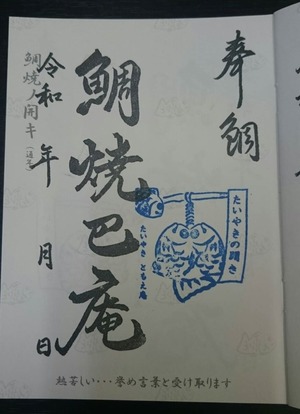 奉鯛
たいやきの開き
たいやき ともえ庵
鯛焼巴庵
令和 年 月 日
鯛焼ノ開キ(通年)
熱苦しい・・・誉め言葉と受け取ります